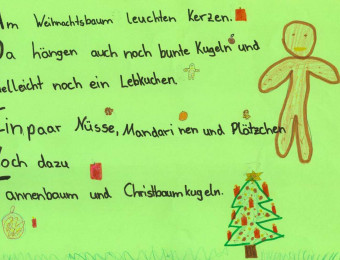 Am Weihnachtsbaum leuchten Kerzen.
Da hängen auch noch bunte Kugeln und
ielleicht noch ein Lebkuchen.
Einpaar Nüsse, Mandarinen und Plötzchen
och dazu
annenbaum und Christbaumkugeln.